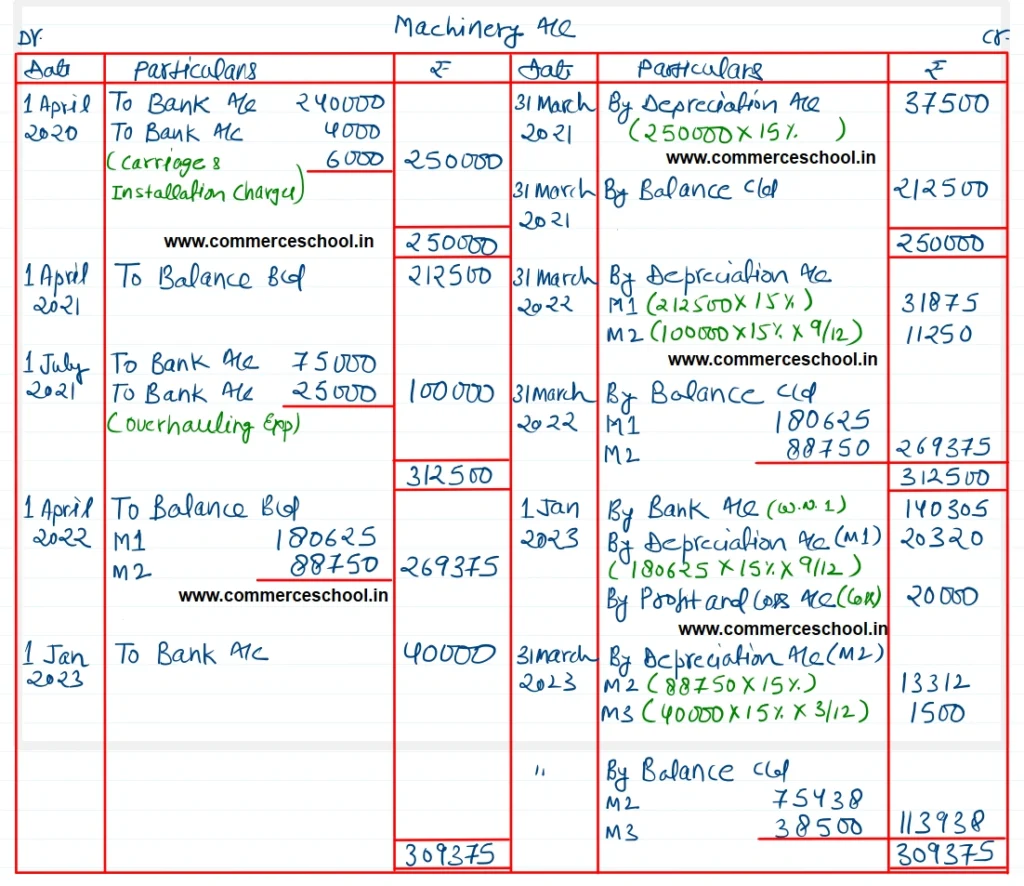 Machinery A/c
Dr. Cr.
Date Particulars ₹ Date Particulars ₹
1 April To Bank A/c 240000 31 March By Depreciation A/c 37500
2020 To Bank A/c 4000 2021 (250000 X 15% )
(Carriage & 6000 250000 www.commerceschool.in
Installation Charges) 31 March By Balance c/d 212500
2021
www.commerceschool.in 250000 250000
1 April To Balance B/d 212500 31 March By Depreciation A/c
2021 2022 M1 (212500 X 15%) 31875
M2 (100000 X 15% X 9/12) 11250
1 July To Bank A/c 75000 www.commerceschool.in
2021 To Bank A/c 25000 100000 31 March By Balance c/d
(Overhauling Exp) 2022 M1 180625
M2 88750 269375
312500 312500
1 April To Balance B/d 1 Jan By Bank A/c (W.N.1) 140305
2022 M1 180625 2023 By Depreciation A/c (M1) 20320
M2 88750 269375 (180625 X 15% X 9/12)
www.commerceschool.in By Profit and Loss A/c (Loss) 20000
www.commerceschool.in
1 Jan To Bank A/c 40000 31 March By Depreciation A/c (M2)
2023 2023 M2 (88750 X 15%) 13312
M3 (40000 X 15% X 3/12) 1500
" By Balance c/d
M2 75438
M3 38500 113938
309375 309375